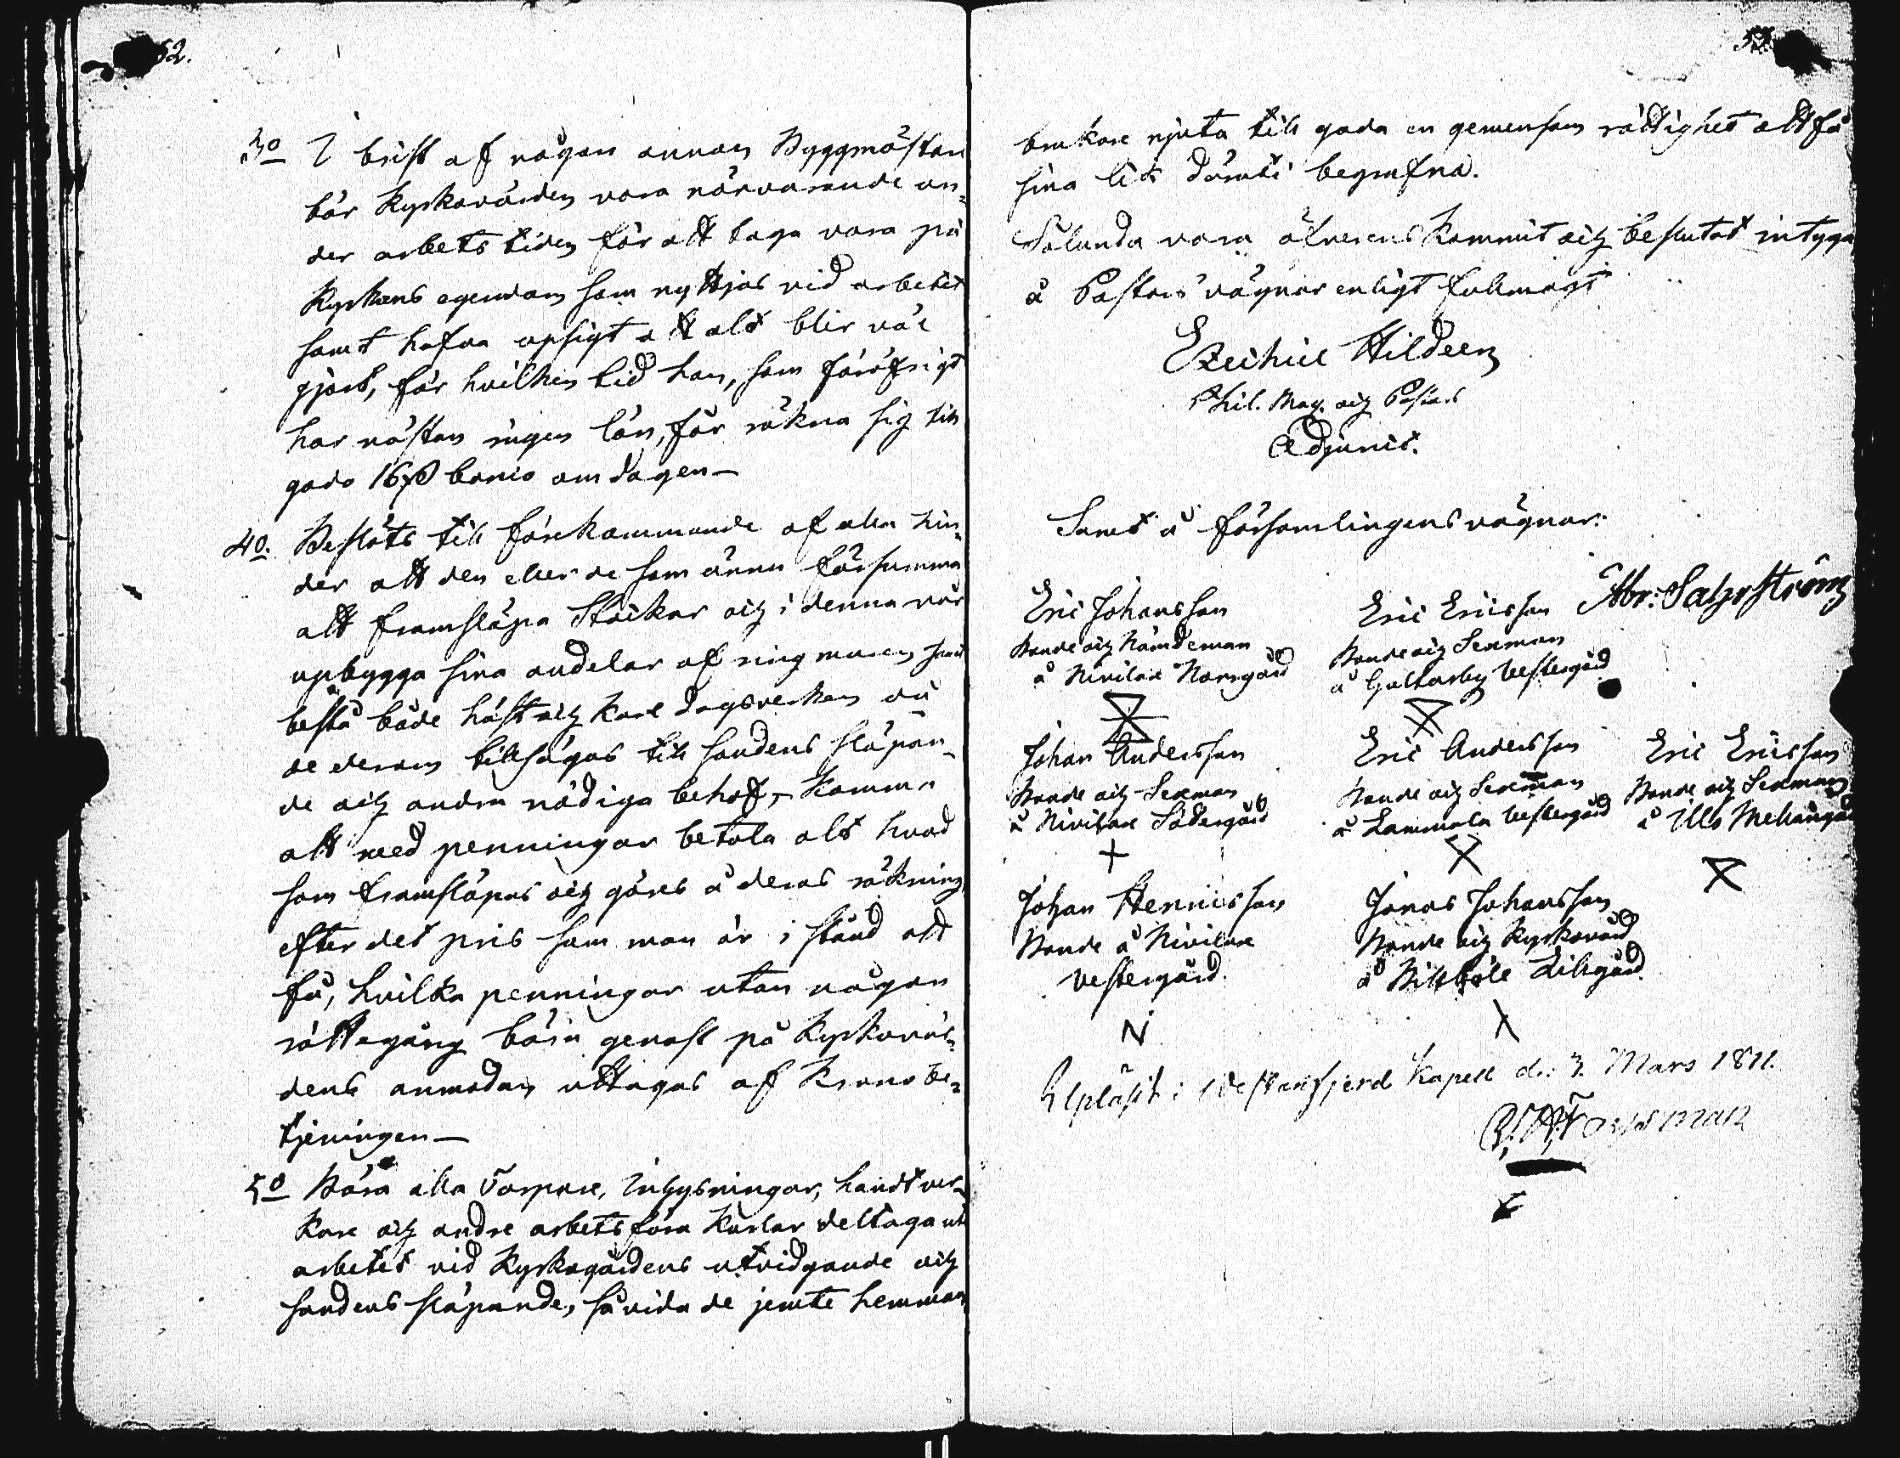 52.
3o I brist af någon annan Byggmästare
bör Kyrkovärden vara närvarande un-
der arbets tiden för att taga vara på
Kyrkans egendom som nyttjas vid arbetet
samt hafva upsigt att alt blir väl
gjort, för hvilken tid han, som föröfrigt
har nästan ingen lön, får räkna sig till
godo 16 ß banco om dagen —
4o. Beslöts till förekommande af alla hin-
der att den eller de som ännu försumma
att framsläpa Stockar och i denna vår
upbygga sina andelar af ringmuren samt
bestå både häst och karl dagsverken då
de derom tillsägas till sandens släpan-
de och andra nödiga behof, komma
att med penningar betala alt hvad
som framsläpas och göres å deras räkning
efter det pris som man är i stånd att
få, hvilka penningar utan någon
rättegång böra genast på Kyrkovär-
dens anmodan uttagas af Krono be-
tjeningen —
5o Böra alla Torpare, Inhysningar, handtver-
kare och andre arbetsföra Karlar deltaga uti
arbetet vid Kyrkogårdens utvidgande och
sandens släpande, såvida de jemte hemmans
53.
brukare njuta till goda en gemensam rättighet att få
sina lik derinti begrafna.
Sålunda vara öfverens kommit och beslutat intyga
å Pastors vägnar enligt fullmagt
Ezechiel Hildeen
Phil. Mag. och Pastors
Adjunct.
Samt å församlingens vägnar:
Eric Johansson
Bonde och Nämdeman
å Nivilax Norrgård
Eric Ericsson
Bonde och Sexman
å Galtarby Vestergård
Abr: Sahlström
Johan Andersson
Bonde och Sexman
å Nivilax Södergård
+
Eric Andersson
Bonde och Sexman
å Lammala Vestergård
X
Eric Ericsson
Bonde och Sexman
å Illo Mellangård
Johan Henricsson
Bonde å Nivilax
Vestergård.
N
Jonas Johansson
Bonde och Kyrkovärd
å Billböle Lillgård
Upläsit i Vestanfjerd Kapell d. 3. Mars 1811.
Forsman